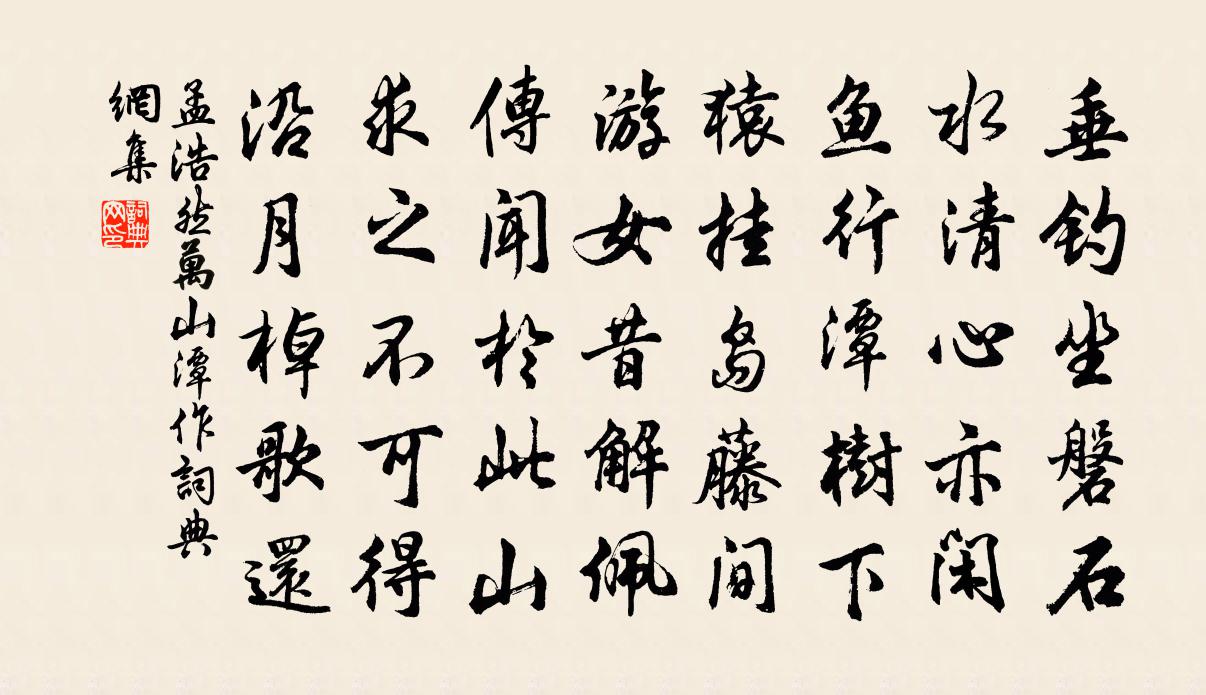 垂钓坐磐石
水清心亦闲
鱼行潭樹下
猿挂島藤间
游女昔解佩
傳闻於此山
求之不可得
沿月棹歌還
孟浩然萬山潭作詞典
網集
詞典
网印